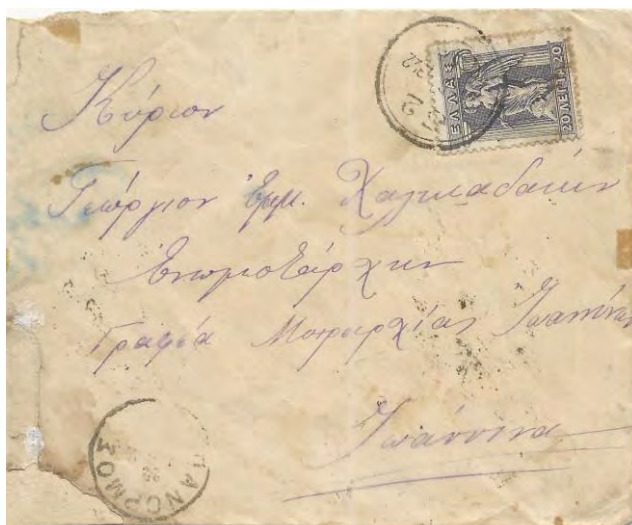 ΕΛΛΑΣ
20 ΛΕΠΤΑ 20
Κύριον
Γεώργιον Εμμ.
Ενωμοτάρχην
Γραφεία Μοιραρχίας Ιωαννίνων
Ιωάννινα
ΠΑΝΟΡΜΟΣ